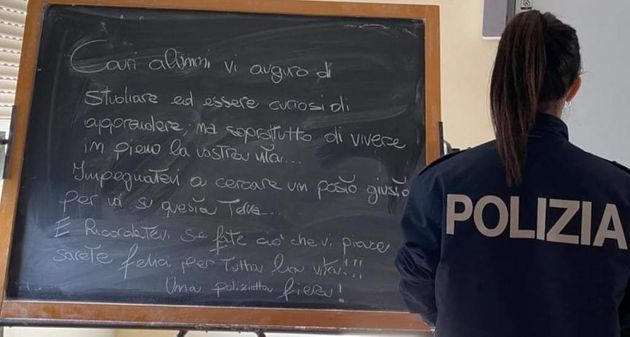 Cari alunni vi auguro di
studiare ed essere curiosi di
apprendere, ma soprattutto di vivere
in pieno la vostra vita...
Impegnatevi a cercare un posto giusto
per voi su questa Terra...
E Ricordatevi se fate ciò che vi piace
sarete felici per tutta la vita!!!
Una poliziotta fiera!
POLIZIA